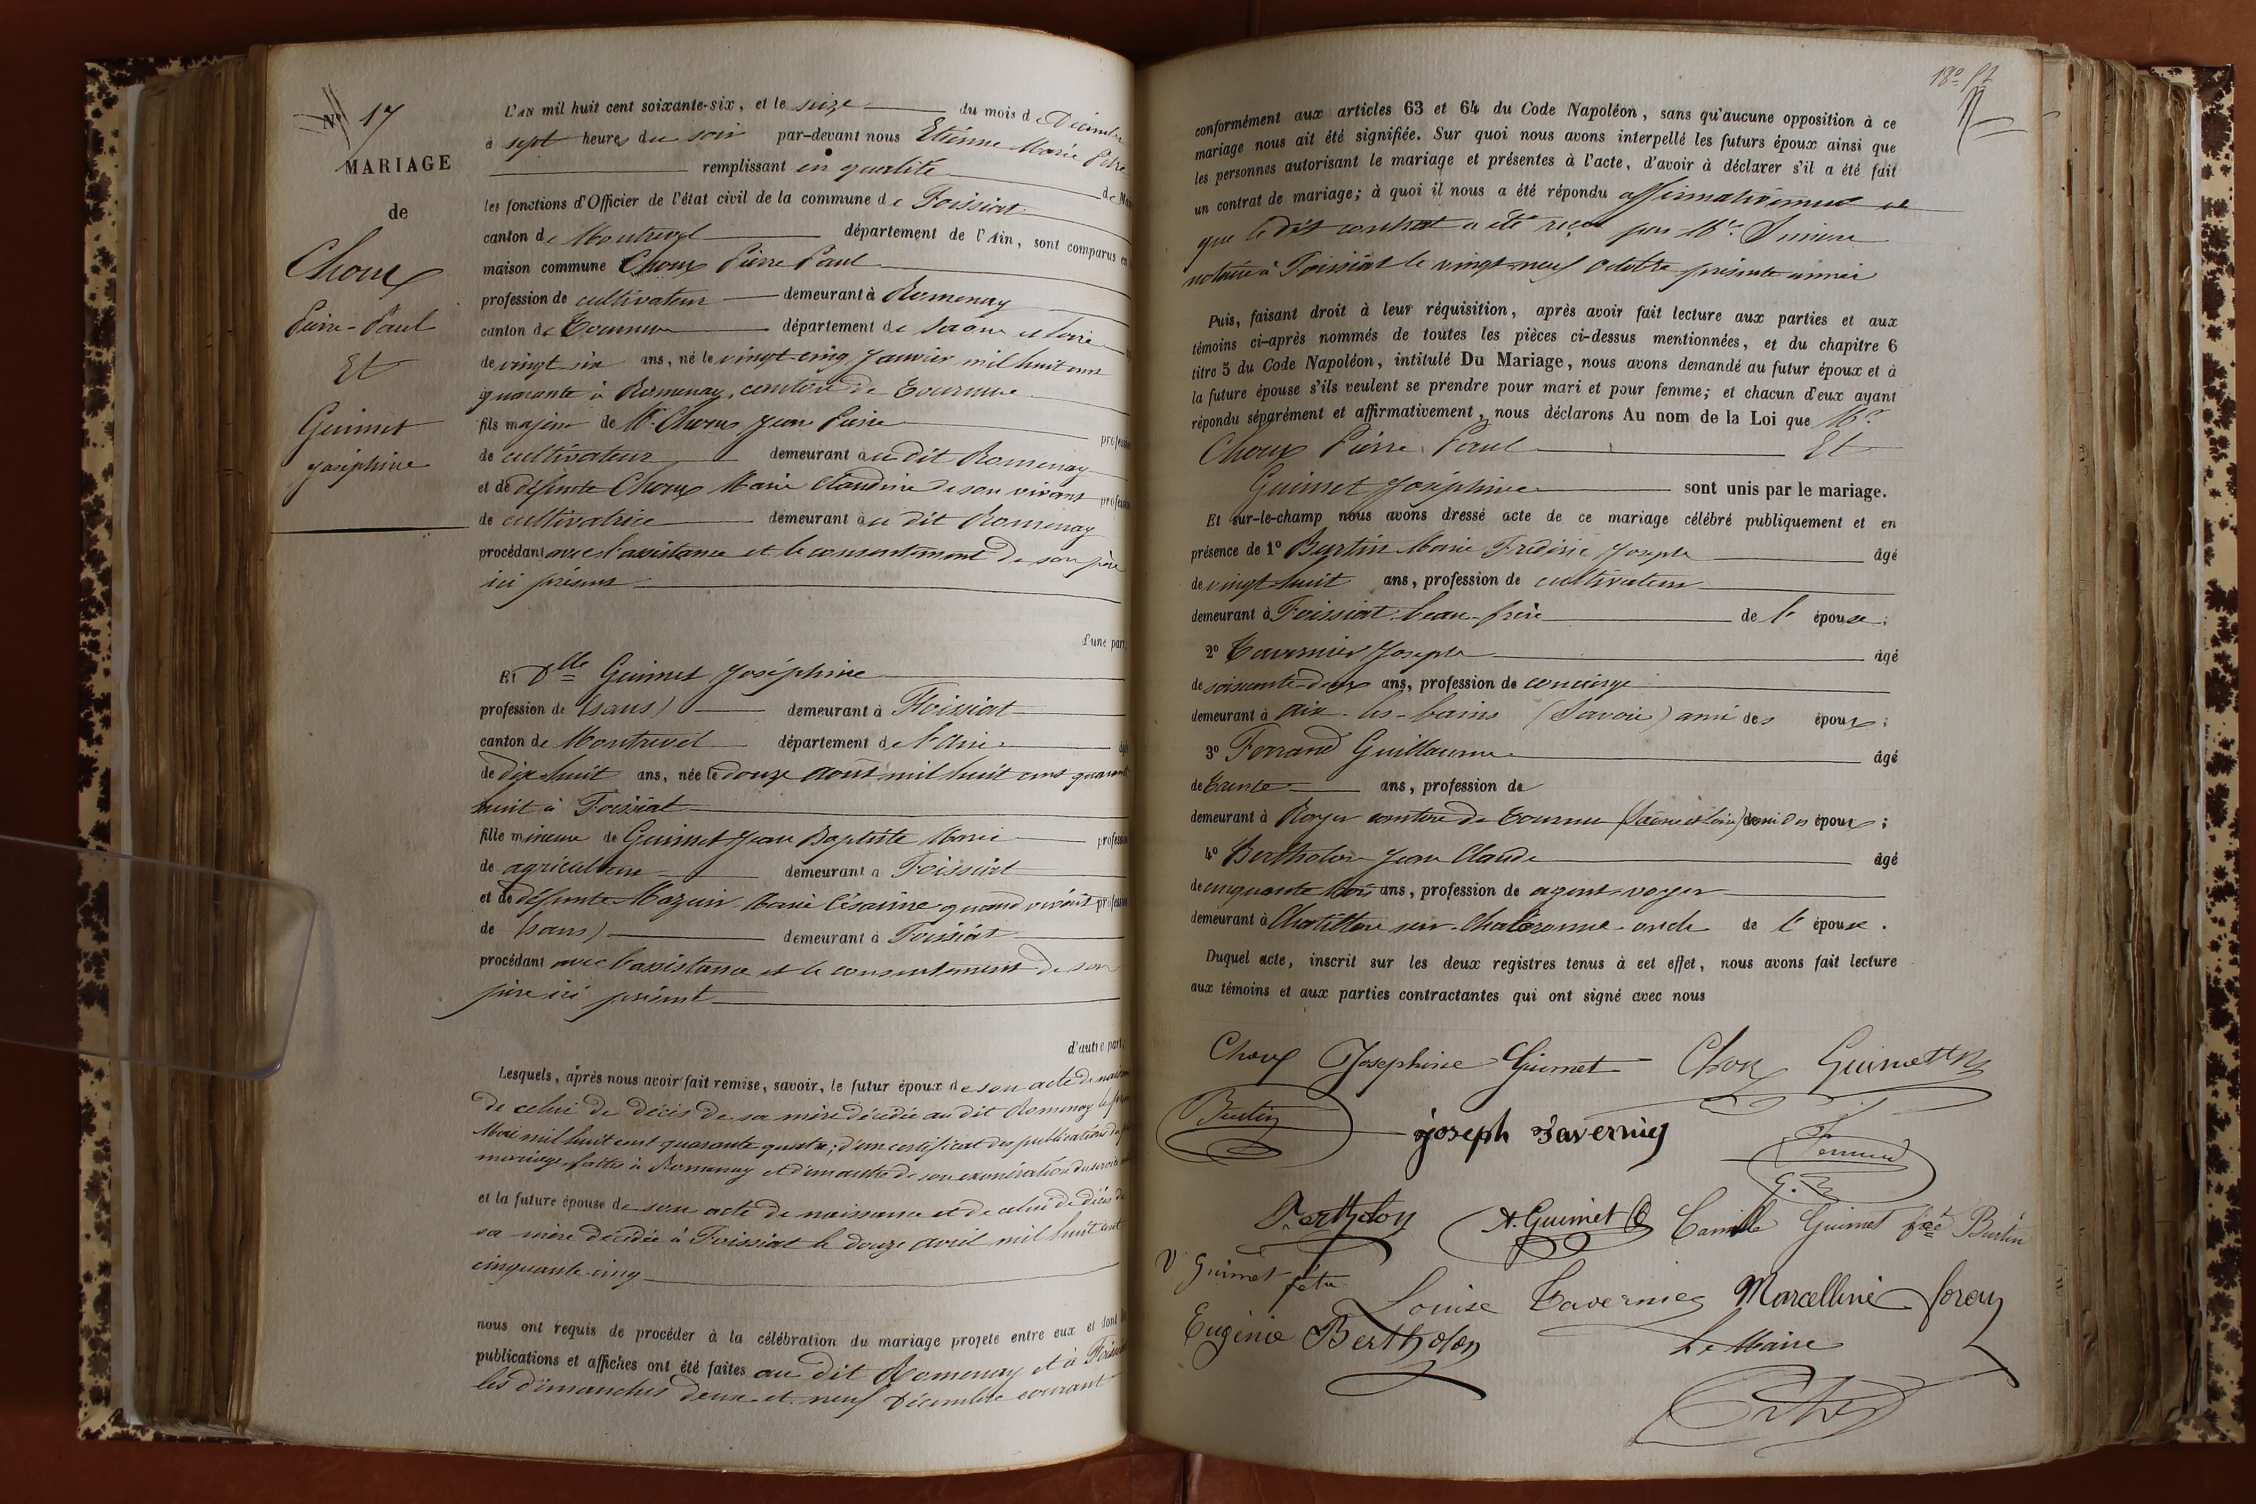 N° 17
MARIAGE
de
Choux
Pierre-Paul
Et
Guimet
Joséphine
L'AN mil huit cent soixante-six, et le seize du mois de Décembre
à sept heures du soir par-devant nous Etienne Marie
remplissant en qualité de
les fonctions d'Officier de l'état civil de la commune de Foissiat
canton de Montrevel département de l'Ain, sont comparus en
maison commune Choux Pierre Paul
profession de cultivateur demeurant à Romenay
canton de Tournus département de Saone et Loire
de vingt six ans, né le vingt-cinq Janvier mil huit cent
quarante à Romenay, canton de Tournus
fils majeur de Mr Choux Jean Pierre profession
de cultivateur demeurant au dit Romenay
et de défunte Choux Marie Claudine de son vivant profession
de cultivatrice demeurant au dit Romenay
procédant avec l'assistance et le consentement de son père
ici présent
d'une part,
Et Dlle Guimet Joséphine
profession de (sans) demeurant à Foissiat
canton de Montrevel département de l'Ain
de dix-huit ans, née le douze Août mil huit cent quarante
huit à Foissiat
fille mineure de Guimet Jean Baptiste Marie profession
de agriculteur demeurant à Foissiat
et de défunte Mazuir Marie Césarine quand vivait profession
de (sans) demeurant à Foissiat
procédant avec l'assistance et le consentement de son
père ici présent
d'autre part;
Lesquels, après nous avoir fait remise, savoir, le futur époux de son acte de
de celui de décès de sa mère décédée au dit Romenay le
mil huit cent quarante quatre; d'un certificat des publications de
mariage faites à Romenay et d'un autre de son exonération du service
et la future épouse de son acte de naissance et de celui de décès de
sa mère décédée à Foissiat le douze avril mil huit cent
cinquante-cinq
nous ont requis de procéder à la célébration du mariage projeté entre eux et dont les
publications et affiches ont été faites au dit Romenay et à Foissiat
les dimanches deux et neuf Décembre courant
conformément aux articles 63 et 64 du Code Napoléon, sans qu'aucune opposition à ce
mariage nous ait été signifiée. Sur quoi nous avons interpellé les futurs époux ainsi que
les personnes autorisant le mariage et présentes à l'acte, d'avoir à déclarer s'il a été fait
un contrat de mariage; à quoi il nous a été répondu affirmativement et
que le dit contrat a été reçu par Me
notaire à Foissiat le vingt-neuf Octobre présente année
Puis, faisant droit à leur réquisition, après avoir fait lecture aux parties et aux
témoins ci-après nommés de toutes les pièces ci-dessus mentionnées, et du chapitre 6
titre 5 du Code Napoléon, intitulé Du Mariage, nous avons demandé au futur époux et à
la future épouse s'ils veulent se prendre pour mari et pour femme; et chacun d'eux ayant
répondu séparément et affirmativement, nous déclarons Au nom de la Loi que Mr
Choux Pierre Paul Et
Guimet Joséphine sont unis par le mariage.
Et sur-le-champ nous avons dressé acte de ce mariage célébré publiquement et en
présence de 1° Burtin Marie Frédéric Joseph âgé
de vingt huit ans, profession de cultivateur
demeurant à Foissiat beau-frère de l'épouse;
2° Tavernier Joseph âgé
de soixante-deux ans, profession de concierge
demeurant à Aix-les-bains (Savoie) ami des époux;
3° Ferrand Guillaume âgé
de trente ans, profession de
demeurant à canton de Tournus (Saône et Loire) ami des époux;
4° Bertholon Jean Claude âgé
de cinquante trois ans, profession de agent-voyer
demeurant à Chatillon sur Chalaronne oncle de l'épouse.
Duquel acte, inscrit sur les deux registres tenus à cet effet, nous avons fait lecture
aux témoins et aux parties contractantes qui ont signé avec nous
Choux Josephine Guimet Choux Guimet
Burtin Joseph Tavernier Ferrand
G.
Bertholon A. Guimet Camille Guimet fme Burtin
V Guimet Louise Tavernier Marcelline
Eugénie Bertholon Le Maire